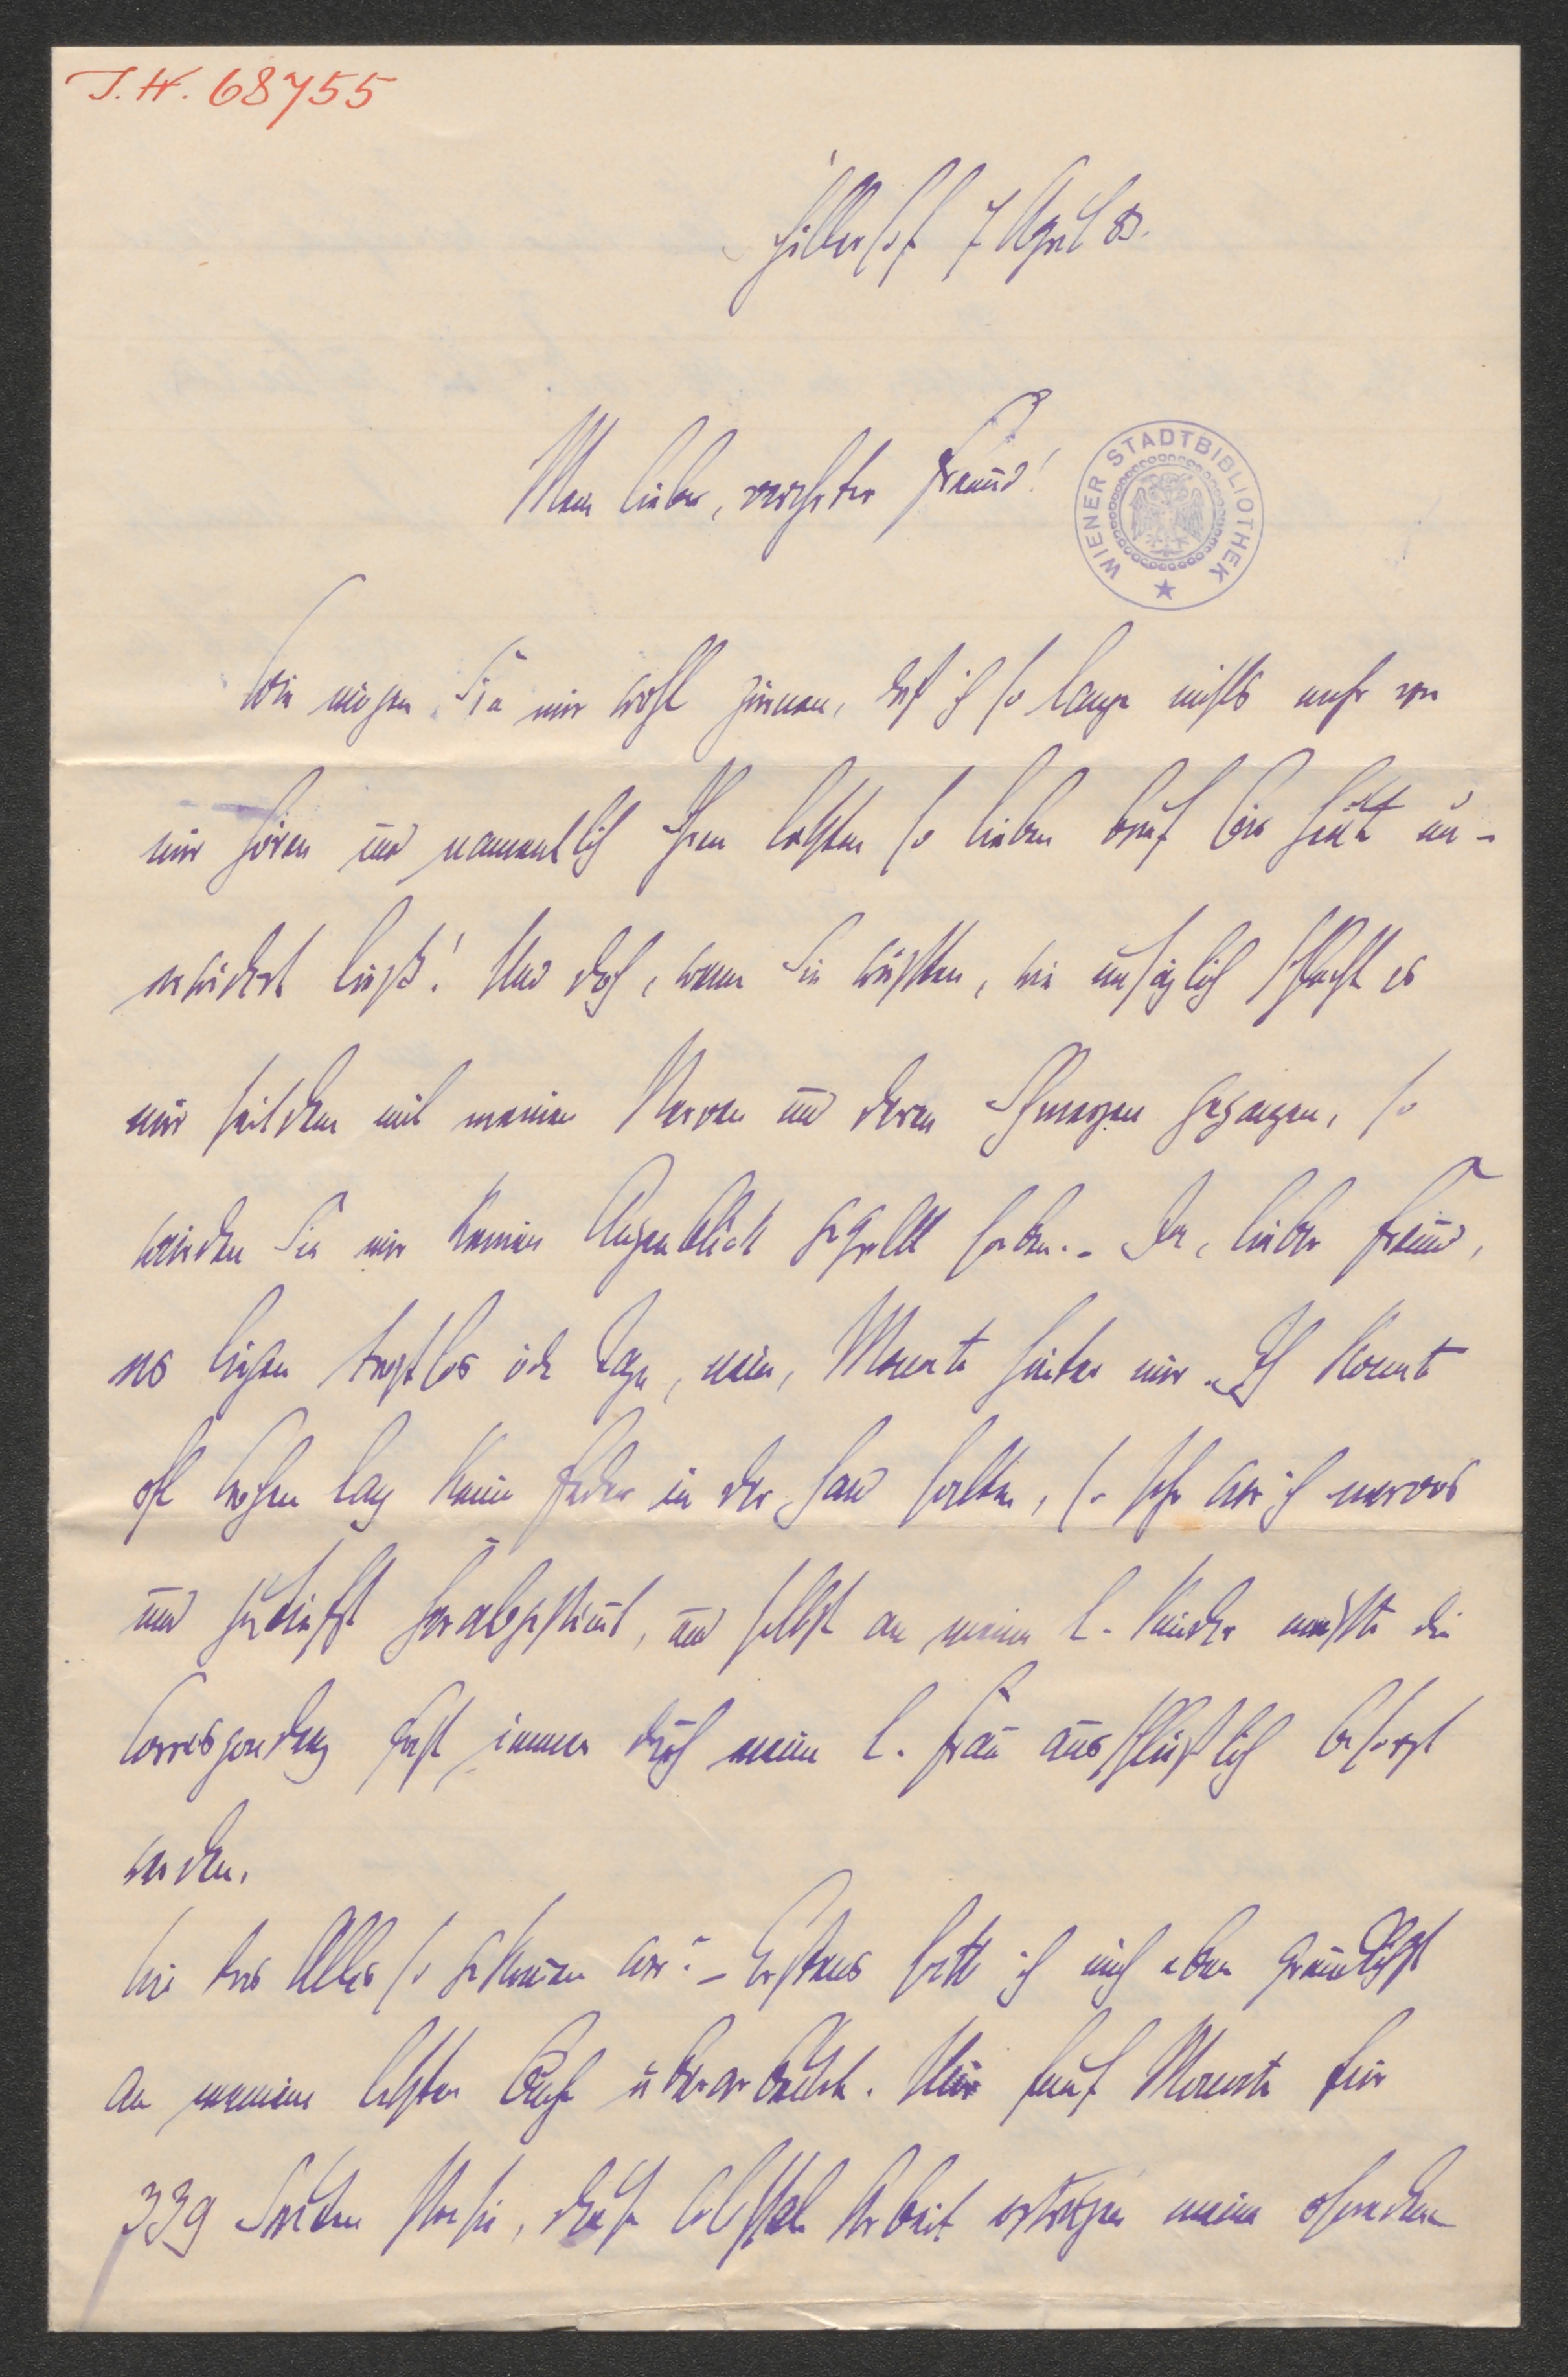 J.N. 68755
7 April 83.
Mein lieber, verehrter Freund!
WIENER STADTBIBLIOTHEK
Wie mögen Sie mir wohl zürnen, daß ich so lange nichts mehr von
mir hören und namentlich Ihren letzten so lieben Brief bis heute un-
erwidert ließ! Und doch, wenn Sie wüßten, wie unsäglich schlecht es
mir seitdem mit meinen Nerven und deren Schmerzen gegangen, so
würden Sie mir keinen Augenblick gegrollt haben. – Ja, lieber Freund,
es liegen trostlos öde Tage, nein, Monate hinter mir. Ich konnte
oft Wochen lang keine Feder in der Hand halten, so sehr war ich nervos
und zutiefst herabgestimmt, und selbst an meine l. Kinder mußte die
Correspondenz fast immer durch meine l. Frau ausschließlich besorgt
werden.
Wie das Alles so gekommen war? – Erstens hatte ich mich eben gründlichst
an meinem letzten Buche überarbeitet. Nur fünf Monate für
339 Seiten Poesie, diese Arbeit ertrugen meine ohnedem